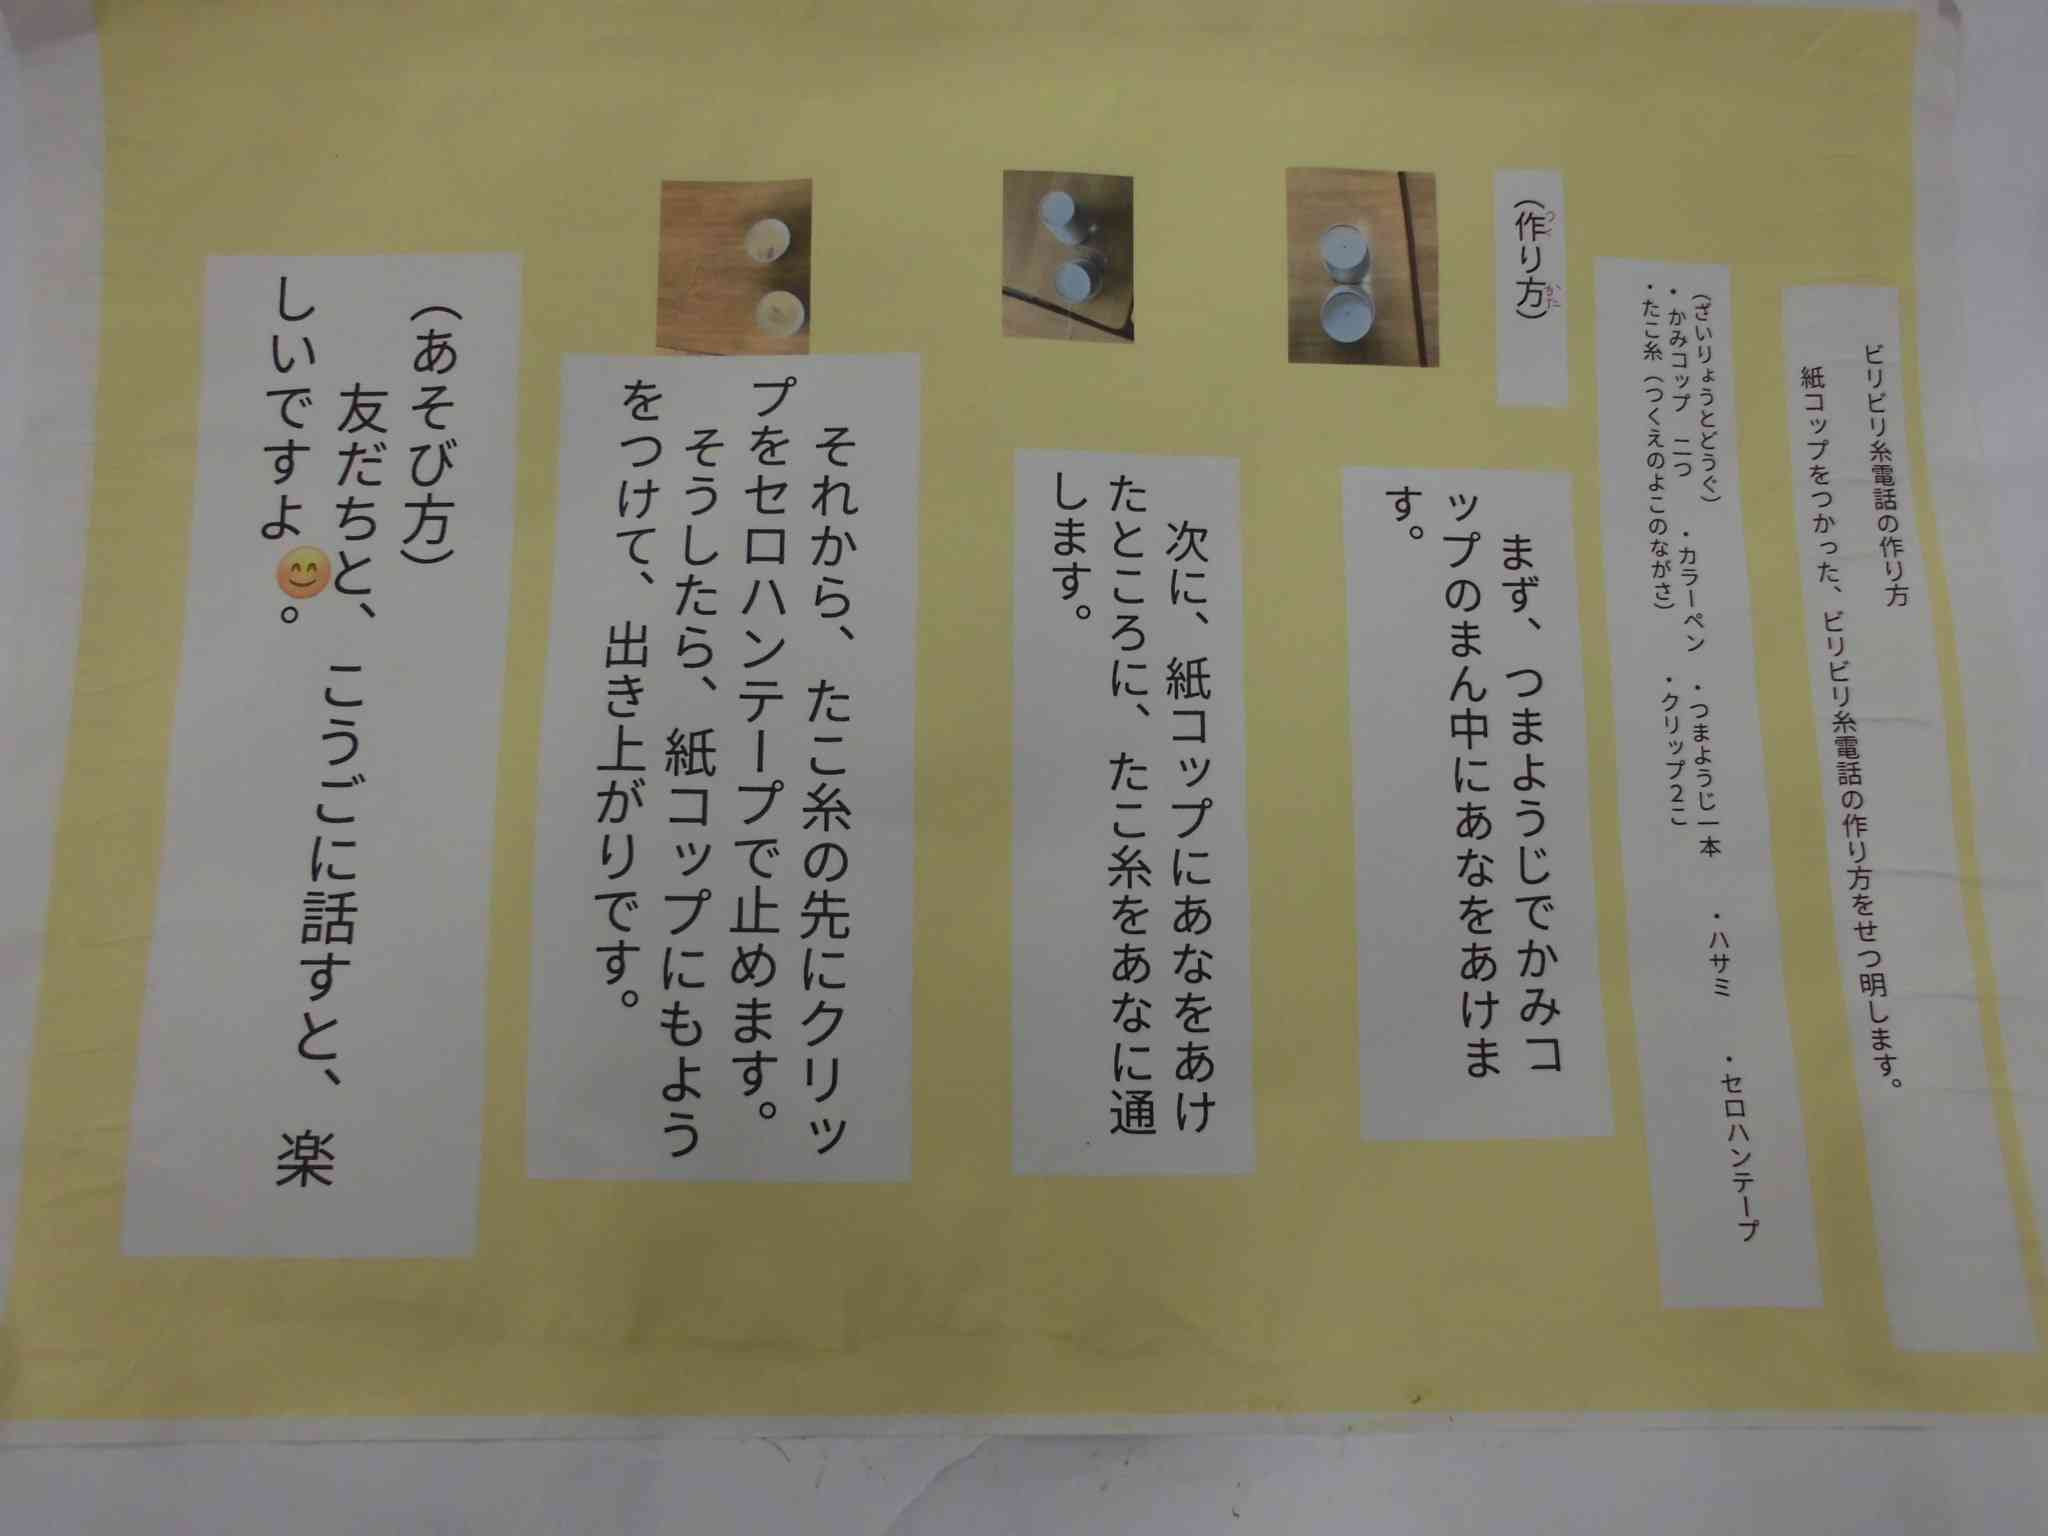 ビリビリ糸電話の作り方
紙コップをつかった、ビリビリ糸電話の作り方をせつ明します。
(ざいりょうとどうぐ)
・かみコップ　二つ　・カラーペン　・つまようじ一本　・ハサミ　・セロハンテープ
・たこ糸(つくえのよこのながさ)　・クリップ2こ
(作り方)
まず、つまようじでかみコ
ップのまん中にあなをあけま
す。
次に、紙コップにあなをあけ
たところに、たこ糸をあなに通
します。
それから、たこ糸の先にクリッ
プをセロハンテープで止めます。
そうしたら、紙コップにもよう
をつけて、出き上がりです。
(あそび方)
友だちと、こうごに話すと、楽
しいですよ😊。